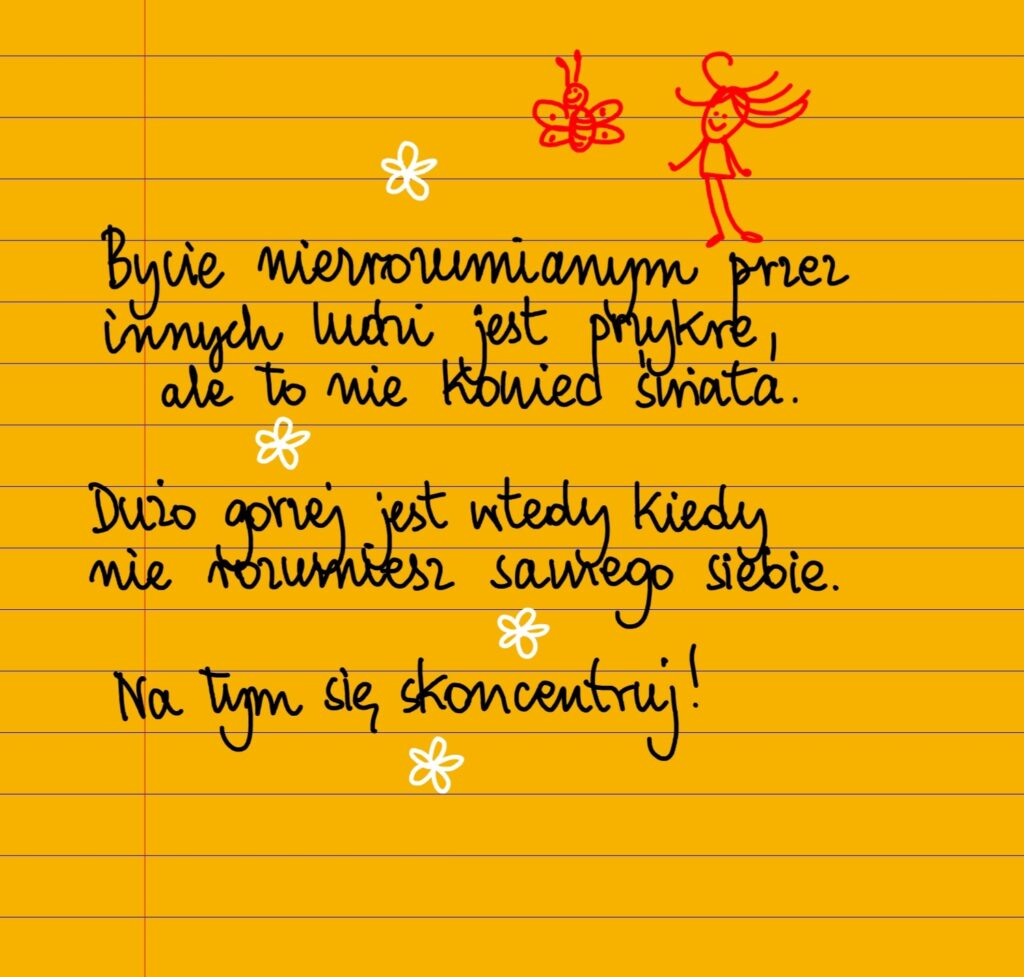 Bycie niezrozumianym przez
innych ludzi jest przykre,
ale to nie koniec świata.
Dużo gorzej jest wtedy kiedy
nie rozumiesz samego siebie.
Na tym się skoncentruj!